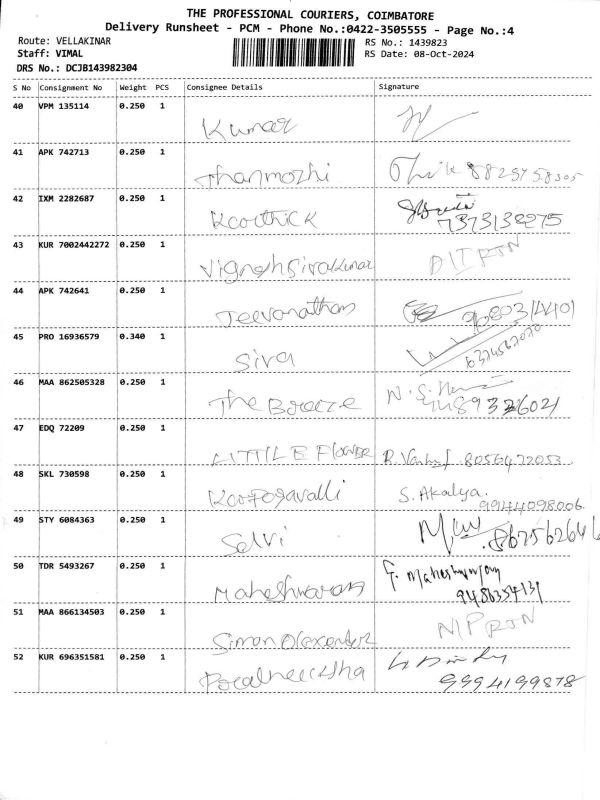 THE PROFESSIONAL COURIERS, COIMBATORE
Delivery Runsheet - PCM - Phone No.:0422-3505555 - Page No.:4
Route: VELLAKINAR RS No.: 1439823
Staff: VIMAL RS Date: 08-Oct-2024
DRS No.: DCJB143982304
S No Consignment No Weight PCS Consignee Details Signature
40 VPM 135114 0.250 1
Kumar
41 APK 742713 0.250 1
Thanmozhi
42 IXM 2282687 0.250 1
Karthick 7373138275
43 KUR 7002442272 0.250 1
Vignesh Sivakumar
44 APK 742641 0.250 1
Jeevanatham
45 PRO 16936579 0.340 1
Siva
46 MAA 862505328 0.250 1
The Breeze
47 EDQ 72209 0.250 1
LITTLE Flower 8056472053
48 SKL 730598 0.250 1
S. Akalya.
9944098006
49 STY 6084363 0.250 1
Selvi
50 TDR 5493267 0.250 1
Maheshwaran 9486354131
51 MAA 866134503 0.250 1
52 KUR 696351581 0.250 1
9994199878